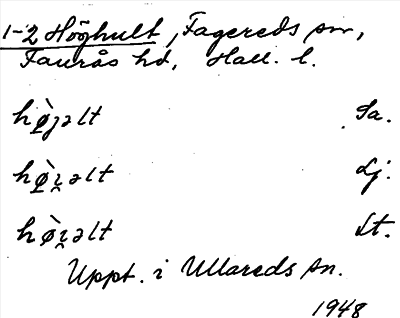 1-2 Höghult, Fagereds sn,
Faurås hd, Hall. l.
hø̀jəlt Sa.
hø̀i̯əlt Lj.
hø̀i̯əlt Lt.
Uppt. i Ullareds sn.
1948